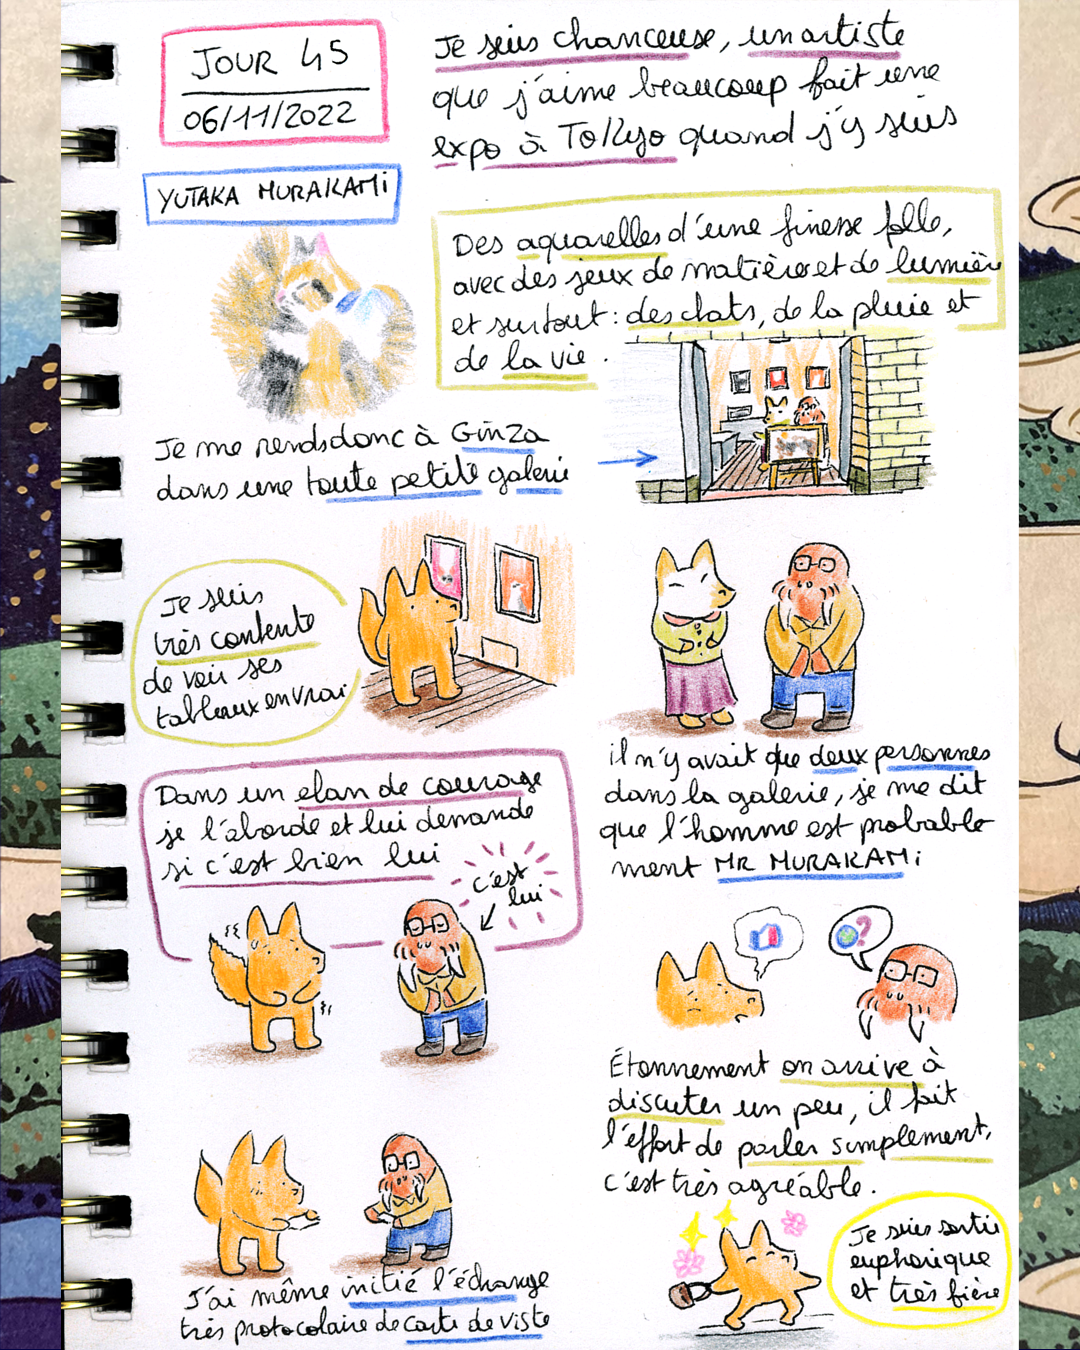 JOUR 45
06/11/2022
Je suis chanceuse, un artiste
que j'aime beaucoup fait une
expo à Tokyo quand j'y suis
YUTAKA MURAKAMI
Des aquarelles d'une finesse folle,
avec des jeux de matière et de lumière
et surtout : des chats, de la pluie et
de la vie.
Je me rends donc à GINZA
dans une toute petite galerie
Je suis
très contente
de voir ses
tableaux en vrai
il n'y avait que deux personnes
dans la galerie, je me dit
que l'homme est probable
ment MR MURAKAMI
Dans un elan de courage
je l'aborde et lui demande
si c'est bien lui
c'est
lui
?
Étonnement on arrive à
discuter un peu, il fait
l'effort de parler simplement,
c'est très agréable.
J'ai même initié l'échange
très protocolaire de carte de viste
Je suis sortie
euphorique
et très fière